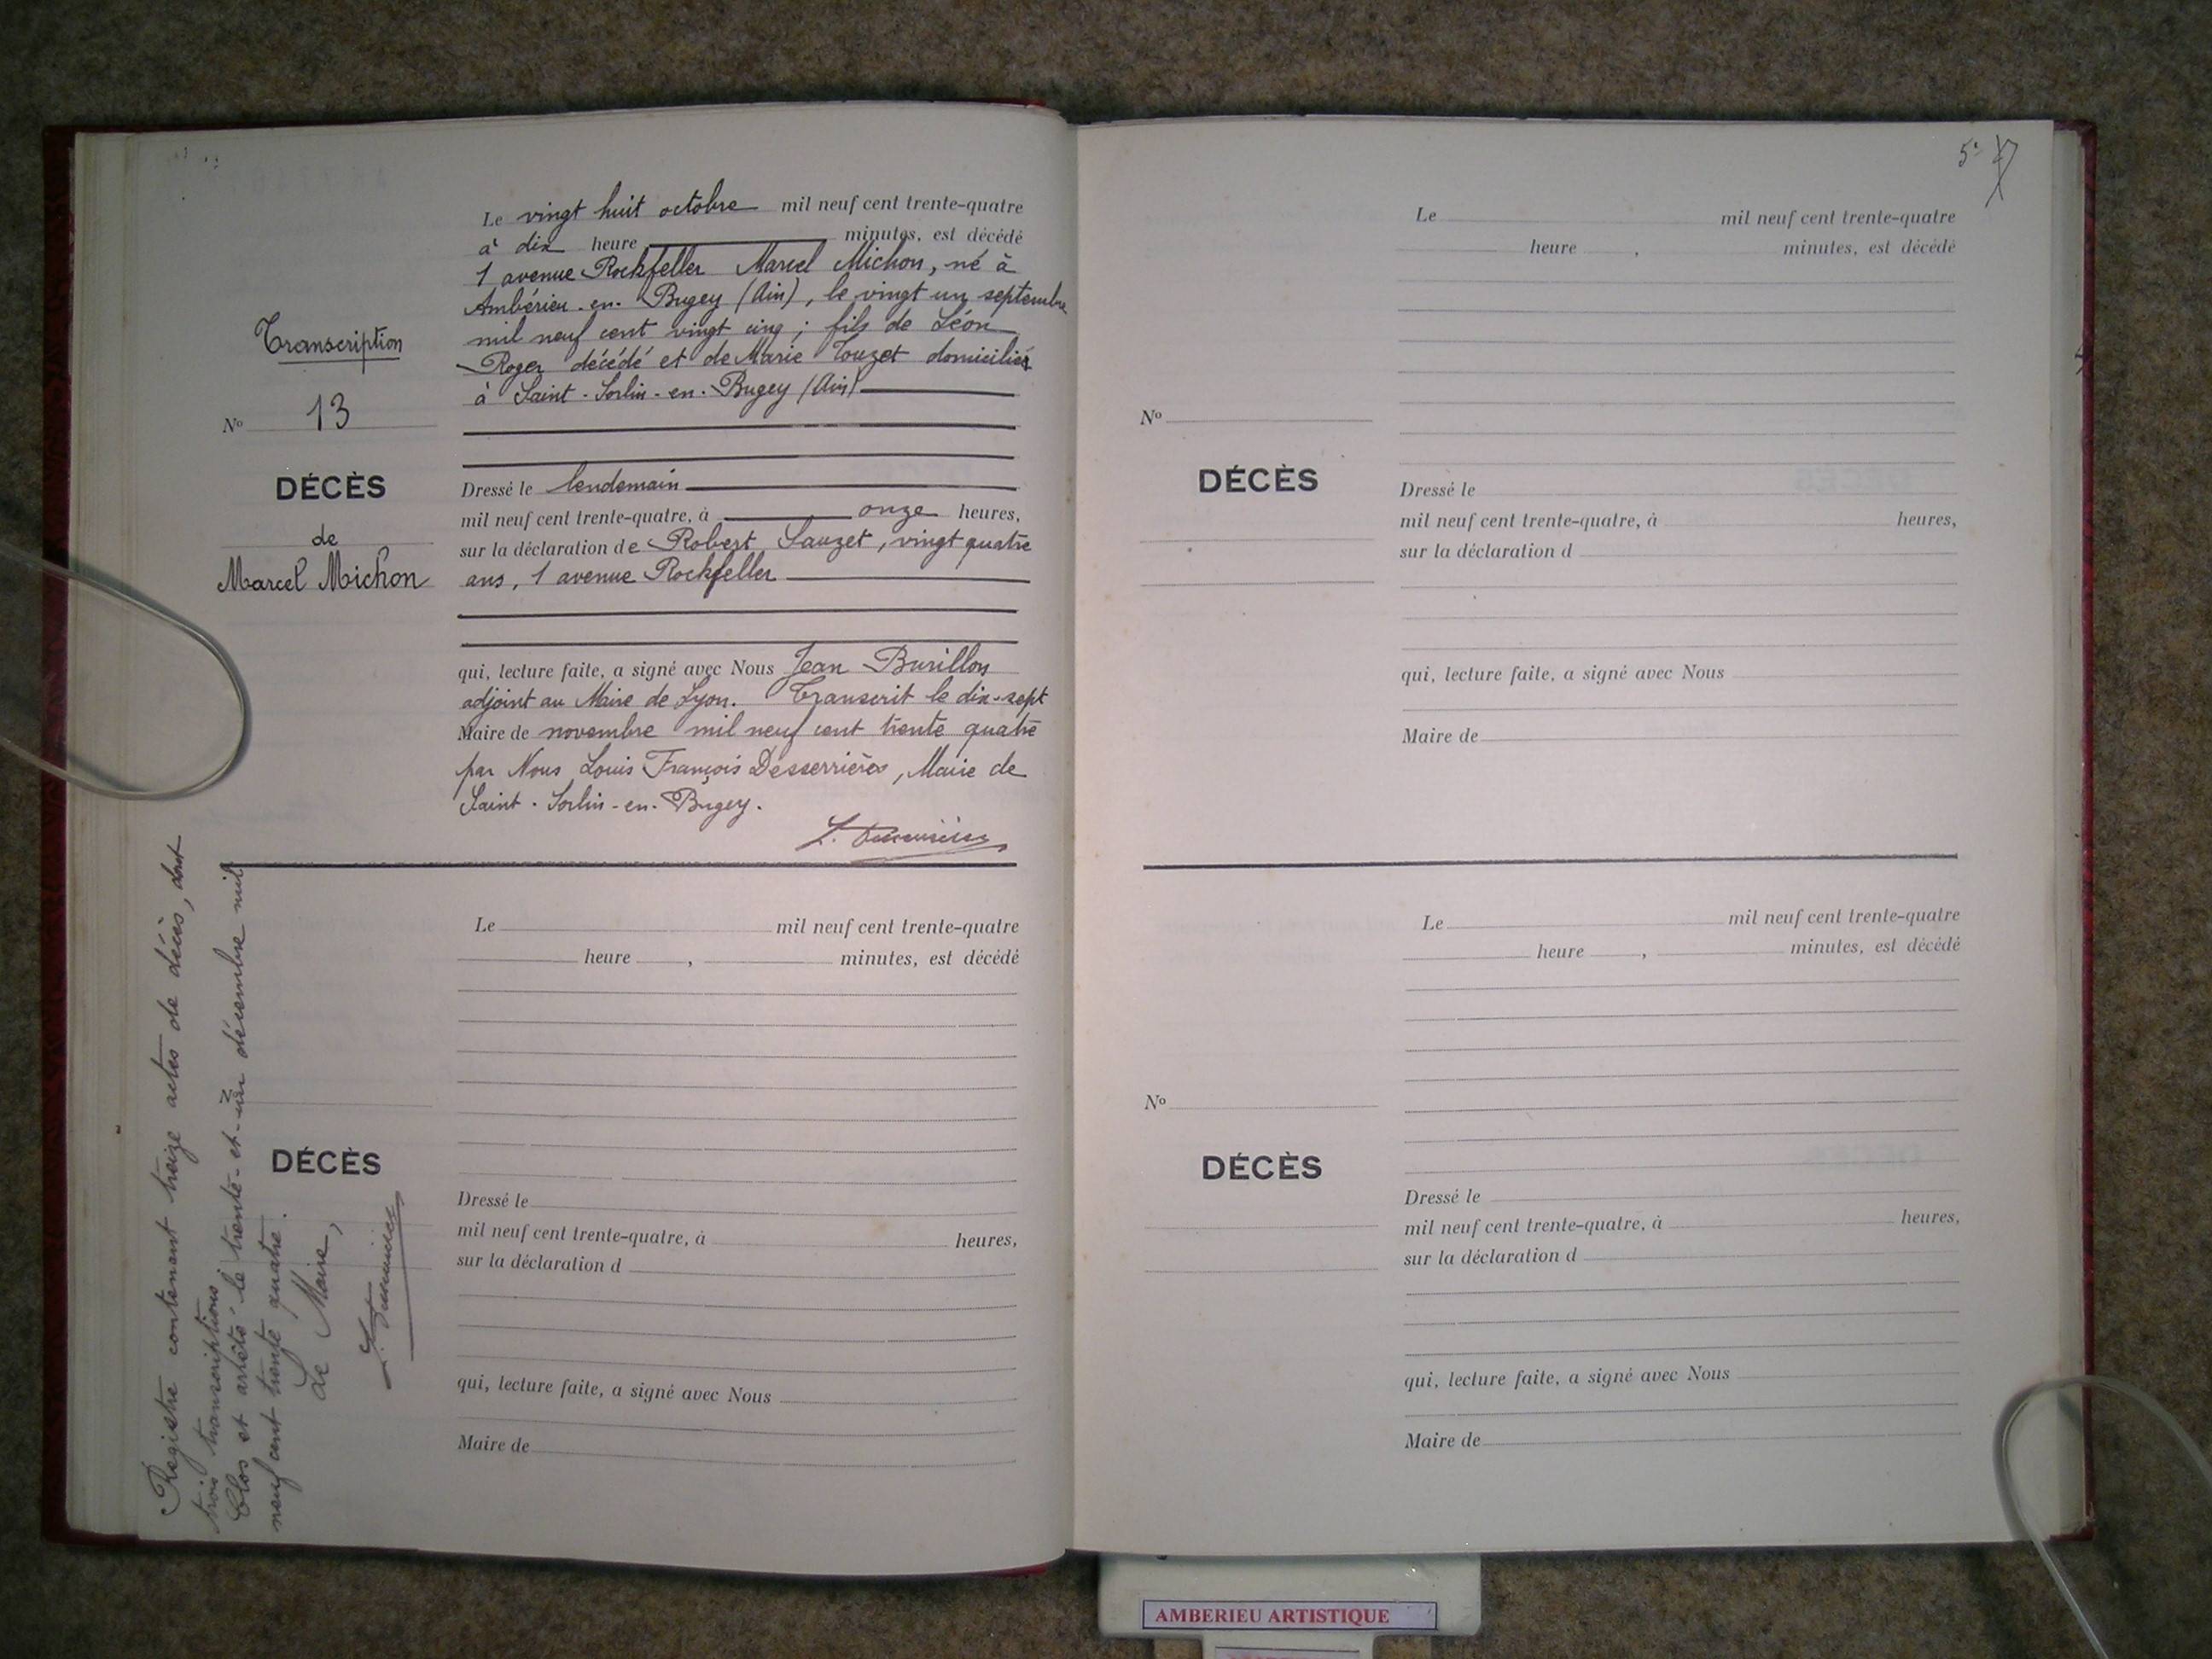 Transcription
Nº 13
DÉCÈS
de
Marcel Michon
Le vingt huit octobre mil neuf cent trente-quatre
à dix heure minutes, est décédé
1 avenue Rockfeller Marcel Michon, né à
Ambérieu-en-Bugey (Ain), le vingt un septembre
mil neuf cent vingt cinq ; fils de Léon
Roger décédé et de Marie Touzet domiciliés
à Saint-Sorlin-en-Bugey (Ain)
Dressé le lendemain
mil neuf cent trente-quatre, à onze heures,
sur la déclaration de Robert Sauzet, vingt quatre
ans, 1 avenue Rockfeller
qui, lecture faite, a signé avec Nous Jean
adjoint au Maire de Lyon. Transcrit le dix-sept
Maire de novembre mil neuf cent trente quatre
par Nous Louis François Desserrières, Maire de
Saint-Sorlin-en-Bugey.
Registre contenant treize actes de décès, dont
trois transcriptions
Clos et arrêté le trente-et-un décembre mil
neuf cent trente quatre.
Le Maire,
DÉCÈS
Le mil neuf cent trente-quatre
heure , minutes, est décédé
Dressé le
mil neuf cent trente-quatre, à heures,
sur la déclaration d
qui, lecture faite, a signé avec Nous
Maire de
Nº
DÉCÈS
Le mil neuf cent trente-quatre
heure , minutes, est décédé
Dressé le
mil neuf cent trente-quatre, à heures,
sur la déclaration d
qui, lecture faite, a signé avec Nous
Maire de
Nº
DÉCÈS
Le mil neuf cent trente-quatre
heure , minutes, est décédé
Dressé le
mil neuf cent trente-quatre, à heures,
sur la déclaration d
qui, lecture faite, a signé avec Nous
Maire de
AMBERIEU ARTISTIQUE